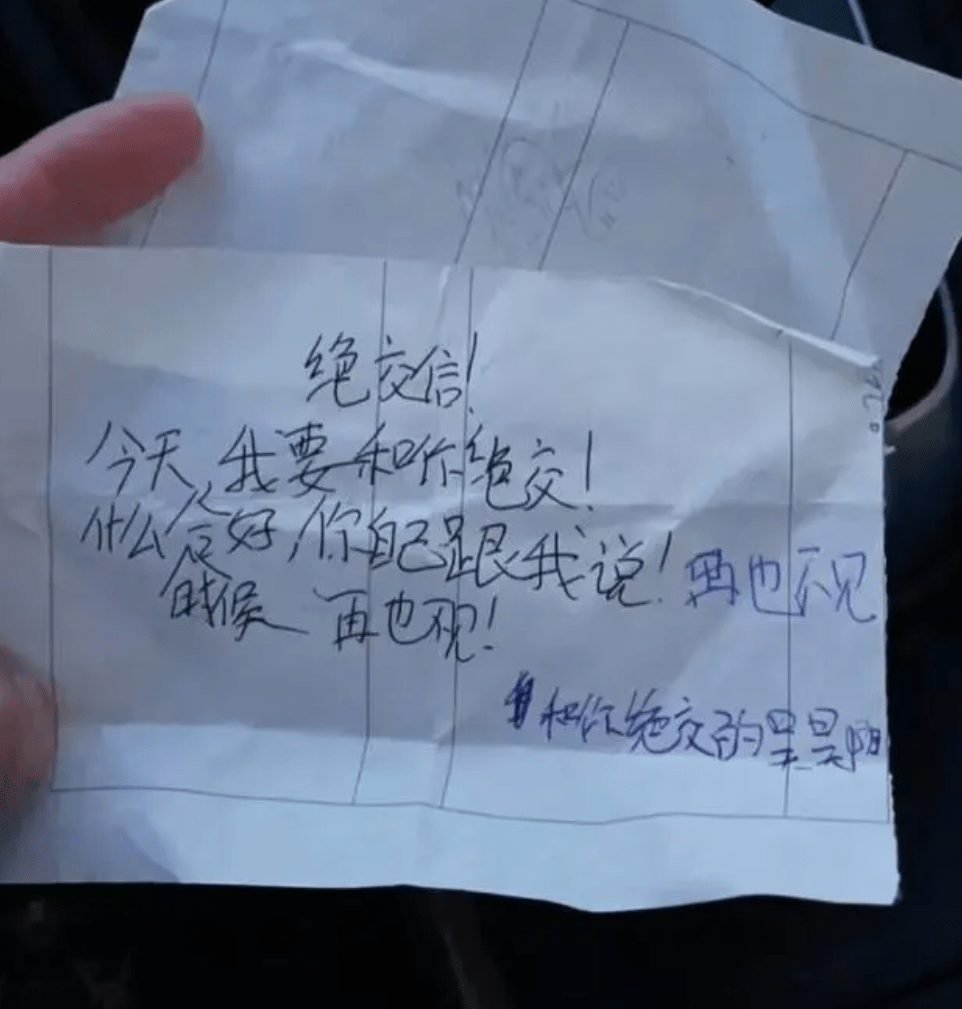 绝交信!
今天,我要和你绝交!
什么时候合好,你自己跟我说!再也不见
再也不见!
和你绝交的吴昊阳